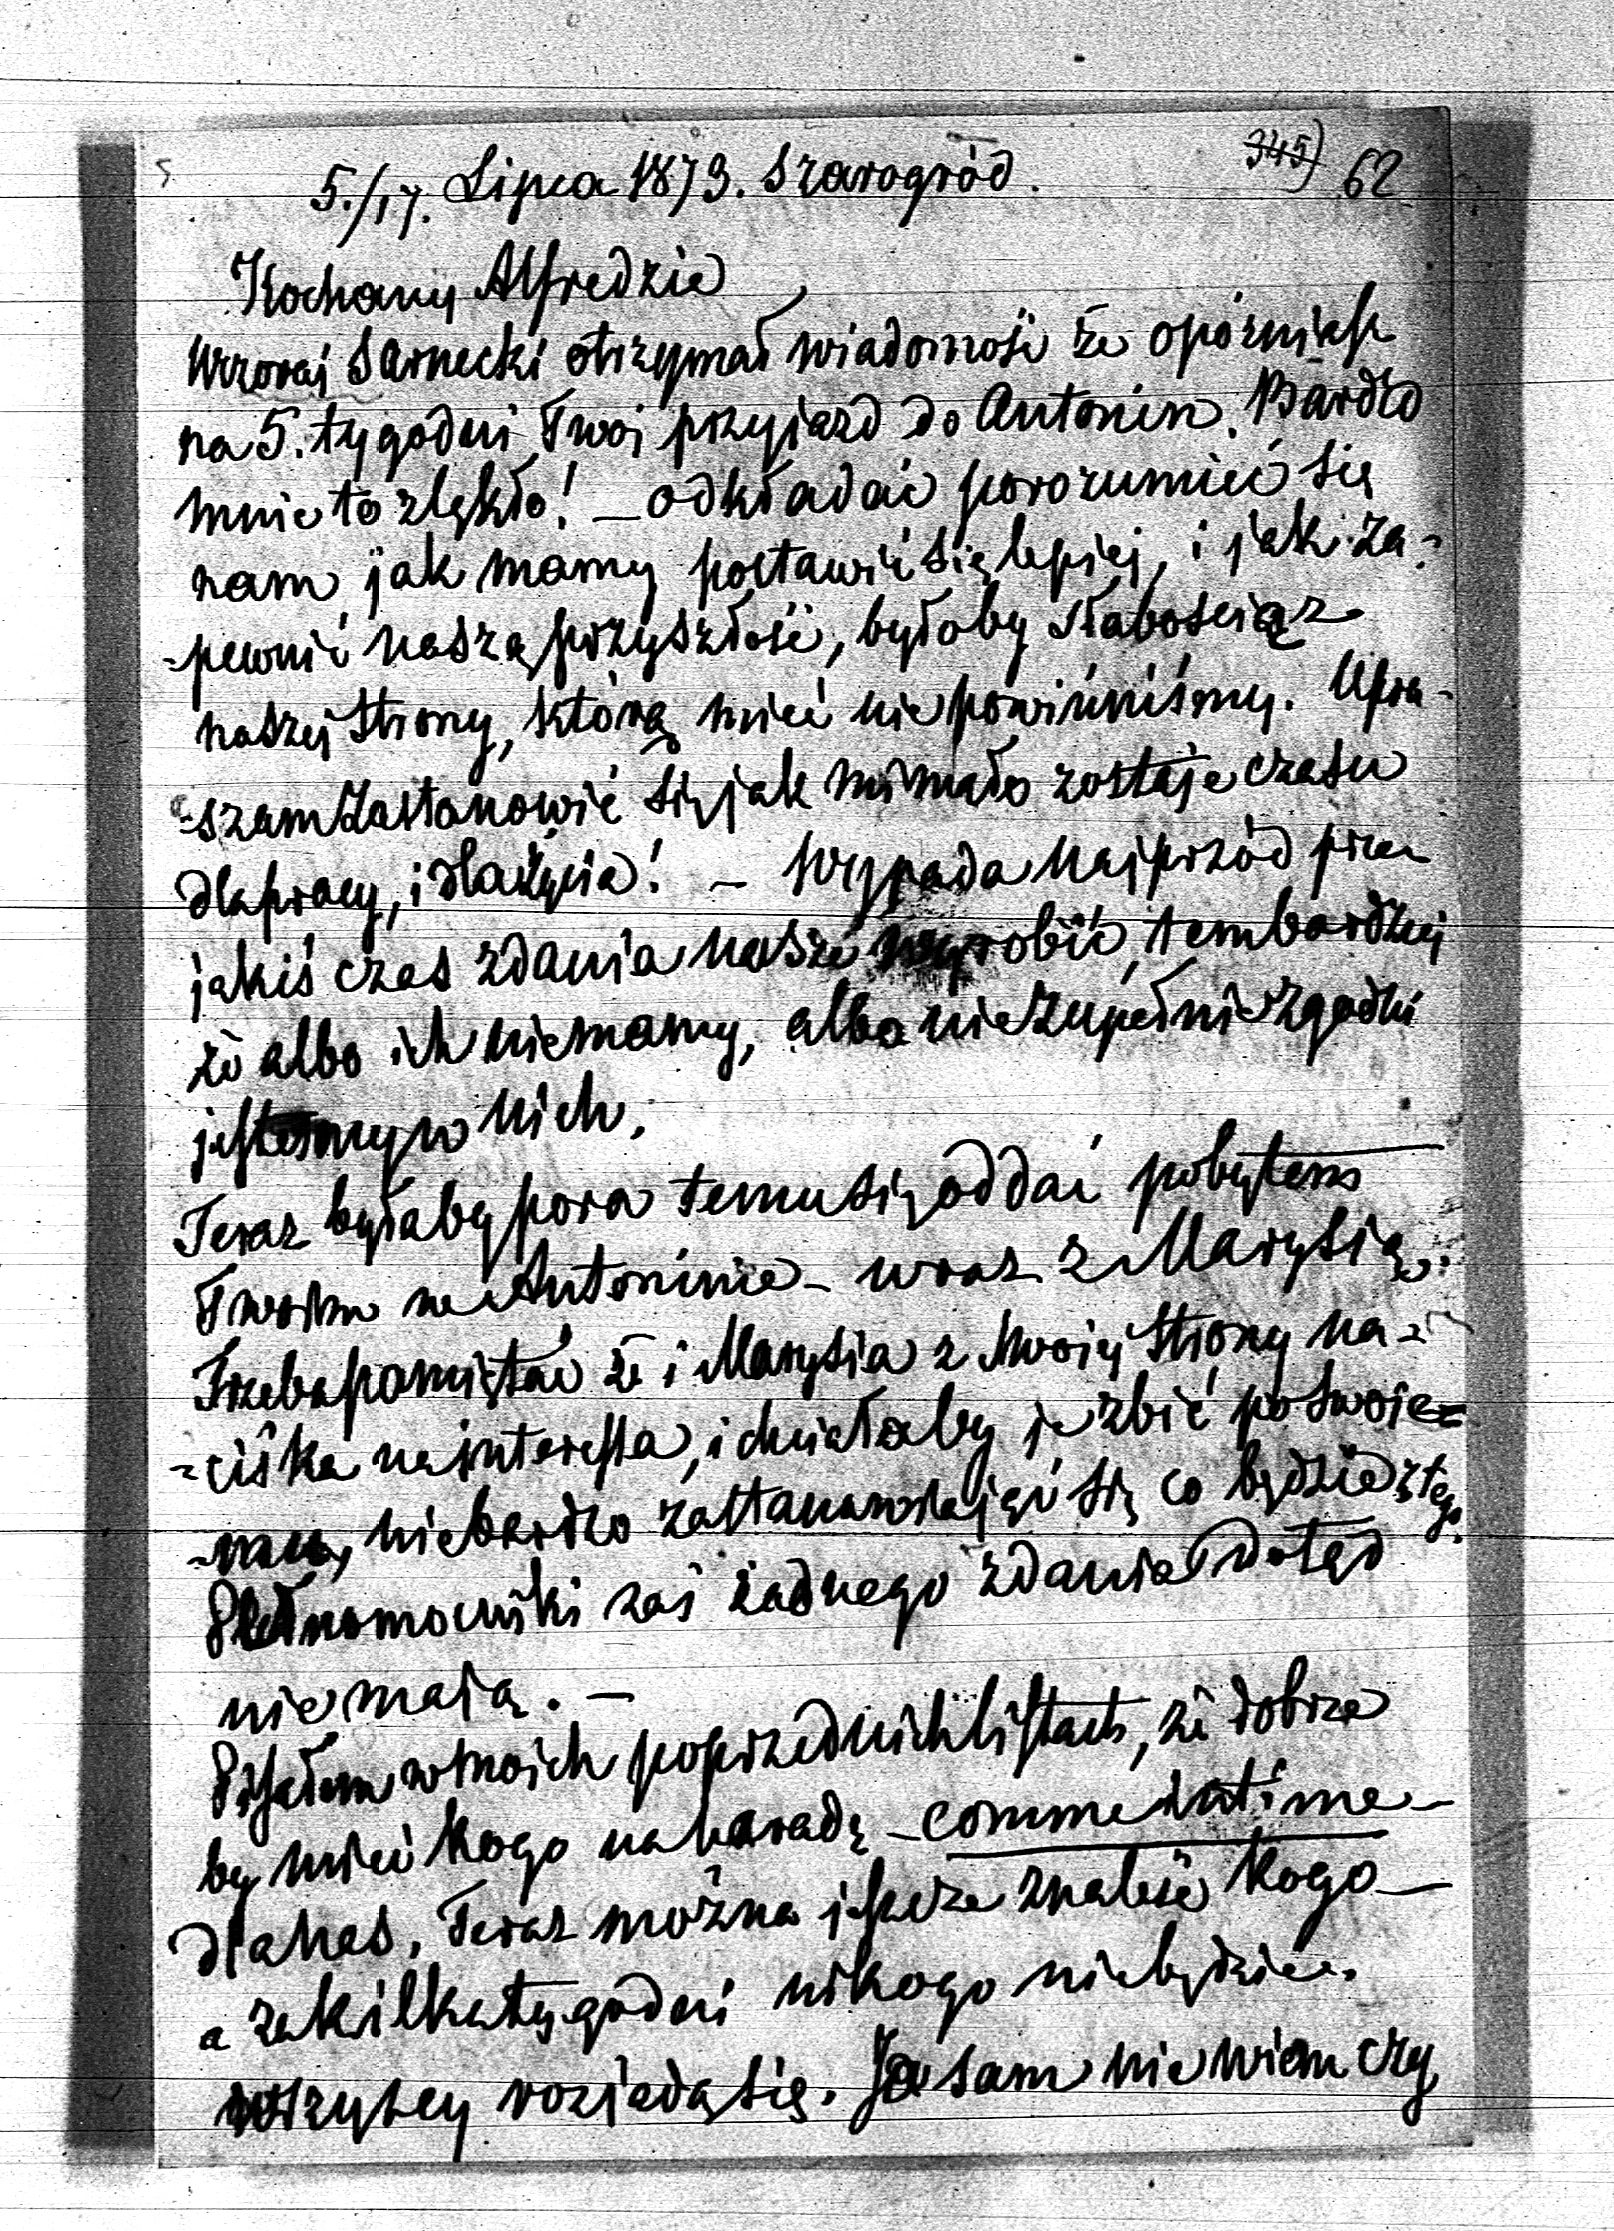 345) 62
5./17. Lipca 1873. Szarogród.
Kochany Alfredzie
Wczoraj Sarnecki otrzymał wiadomość że opóźniasz
na 5. tygodni Twoj przyjazd do Antonin. Bardzo
mnie to zlękło! — odkładać porozumieć się
nam jak mamy postawić się lepiej, i jak za-
-pewnić naszą przyszłość, byłoby słabością z
naszej strony, którą mieć nie powinniśmy. Upra-
-szam zastanowić się jak mi mało zostaje czasu
dla pracy, i dla życia! — Wypada najprzód przez
jakiś czas zdania nasze wyrobić, tembardziej
że albo ich niemamy, albo nie zupełnie zgodni
jesteśmy w nich.
Teraz byłaby pora temu się oddać pobytem
Twoim w Antoninie — wraz z Marysią.
Trzeba pamiętać że i Marysia z swojej strony na-
-ciska na interessa, i chciałaby je zbić po swoje-
-mu, niebardzo zastanawiając się co będzie z tego.
Pełnomocniki zaś żadnego zdania dotąd
nie mają. —
Pisałem w moich poprzednich listach, że dobrze
by mieć kogo na naradę — comme intime —
dla nas. Teraz można jeszcze znaleść kogo —
a za kilka tygodni nikogo niebędzie.
wszyscy rozjadą się. Ja sam nie wiem czy